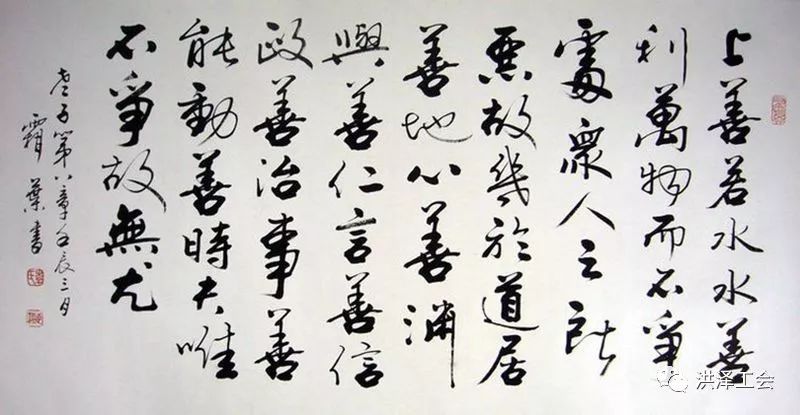 上善若水水善
利萬物而不爭
處衆人之所
惡故幾於道居
善地心善淵
與善仁言善信
政善治事善
能動善時夫唯
不爭故無尤
老子第八章壬辰三月
霜葉書
洪泽工会